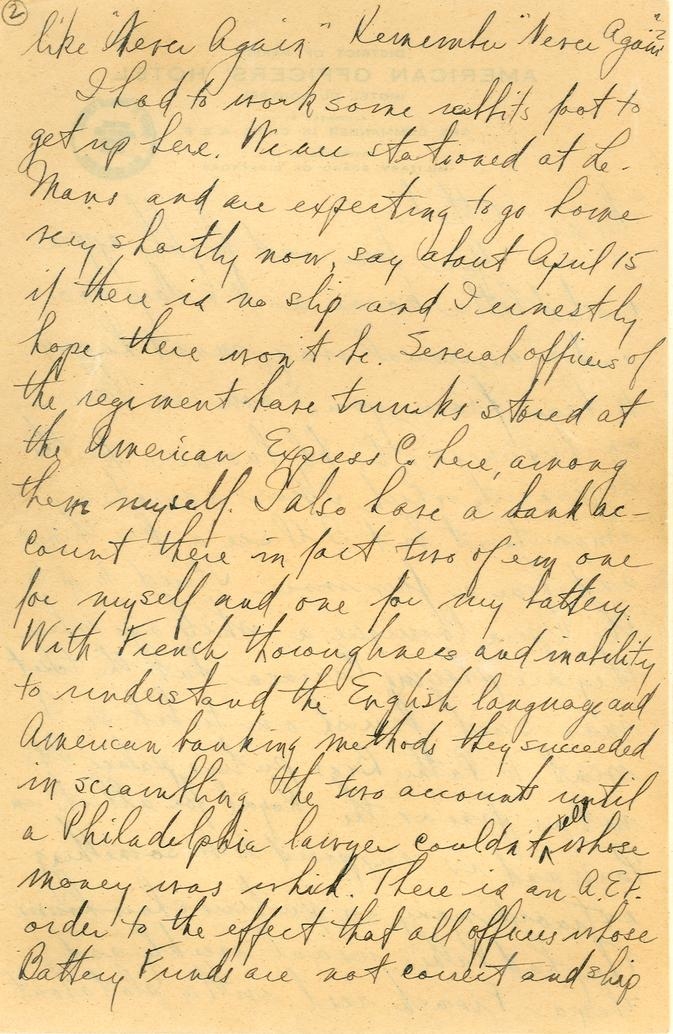 ②
like "Never Again" Remember "Never Again"?
I had to work some rabbits foot to
get up here. We are stationed at Le-
Mans and are expecting to go home
very shortly now, say about April 15
if there is no slip and I ernestly
hope there won't be. Several officers of
the regiment have trunks stored at
the American Express Co here, among
them myself. I also have a bank ac-
count there in fact two of em one
for myself and one for my battery.
With French thoroughness and inability
to understand the English language and
American banking methods they succeeded
in scrambling the two accounts until
a Philadelphia lawyer couldn't tell whose
money was which. There is an A.E.F.
order to the effect that all officers whose
Battery Funds are not correct and ship
AMERICAN OFFICERS HOTEL